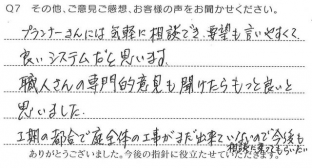 Q7 その他、ご意見ご感想、お客様の声をお聞かせください。
プランナーさんには気軽に相談でき、要望も言いやすくて
良いシステムだと思います。
職人さんの専門的意見も聞けたらもっと良いと
思いました。
工期の都合で庭全体の工事がまだ出来ていないので今後も
相談に乗ってもらいたい
ありがとうございました。今後の指針に役立たせていただきます。